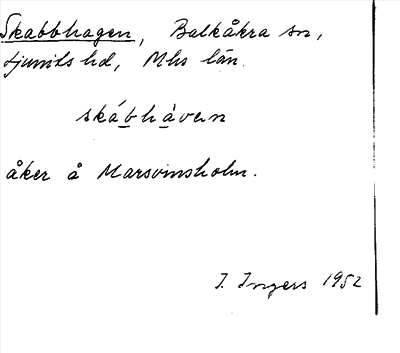 Skabbhagen, Balkåkra sn,
Ljunits hd, Mhs län.
skábhàvan
åker å Marsvinsholm.
I. Ingers 1952